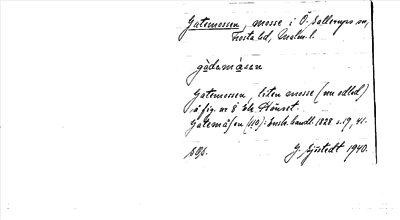 Gatemossen, mosse i Ö. Sallerups sn,
Frosta hd, Malm. l.
gàdamåsen
Gatemossen, liten mosse (nu odlad)
å fig. nr 8
Gatemåsen (110): Ensk. handl. 1828 s. 19, 41.
G. Sjöstedt 1940.